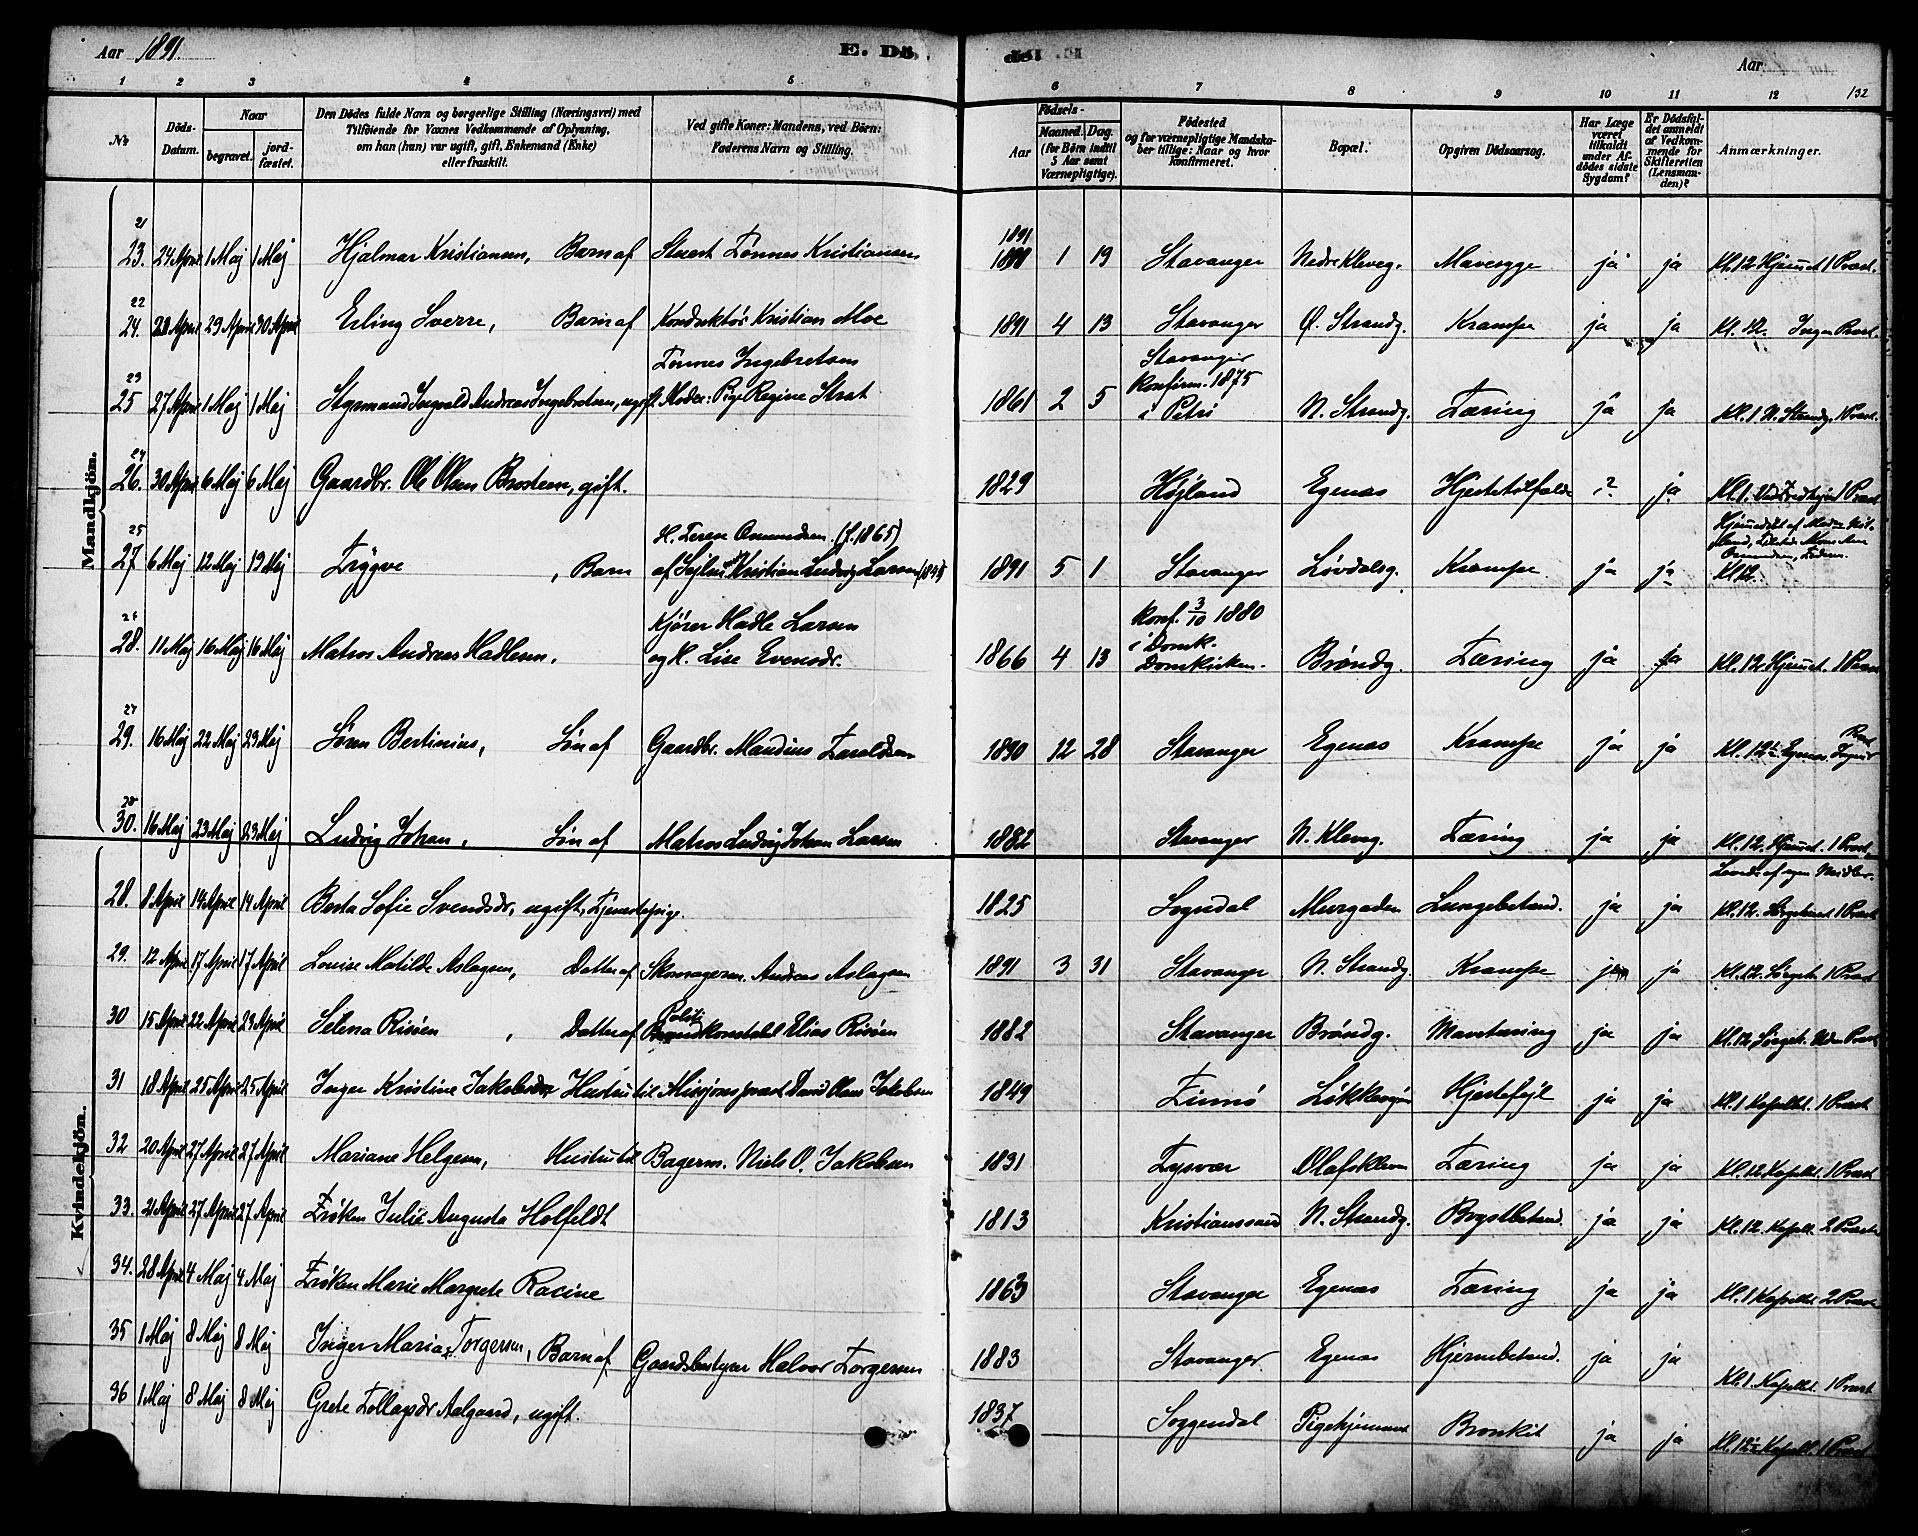 Aar 1891. E. Dö de. Aar
1 2 3 4 5 6 7 8 9 10 11 12 132
No Döds-Datum. Naar begravet. jord-fæstet. Den Dödes fulde Navn og borgerlige Stilling (Næringsvei) med Tilföiende for Voxnes Vedkommende af Oplysning, om han (hun) var ugift, gift, Enkemand (Enke) eller fraskilt. Ved gifte Koner: Mandens, ved Börn: Faderens Navn og Stilling. Födsels- Aar Maaned. Dag. (for Börn indtil 5 Aar samt Værnepligtige). Födested og for værnepligtige Mandska-ber tillige: Naar og hvor konfirmeret. Bopæl. Opgiven Dödsaarsag. Har Læge været tilkaldt under Af-dödes sidste Sygdom? Er Dödsfal-det anmeldt af Vedkom-mende for Skifteretten (Lensman-den)? Anmærkninger.
Mandkjön.
21 1891
23. 24 April 1 Maj 1 Maj Hjalmar Kristiansen, Barn af Stuert Tönnes Kristiansen 1 19 Stavanger Nedre Kleveg. Mavesyge ja ja Kl. 12 Hjemmet 1 Præst.
22
24. 28 April 29 April 30 April Erling Sverre, Barn af Konduktör Kristian Moe 1891 4 13 Stavanger Ø. Strandg. Krampe ja ja Kl. 12. Ingen Præst.
Tönnes Ingebretsen Stavanger
23 konfirm. 1875
25 27 April 1 Maj 1 Maj Styrmand Ingvald Andreas Ingebretsen, ugift. Moder: Pige Regine Strat 1861 2 5 i Petri N. Strandg. Tæring ja ja Kl. 1 N. Strandg. 1 Præst.
24
26. 30 April 6 Maj 6 Maj Gaardbr. Ole Olsen Brosteen, gift. 1829 Højland Egenæs Hjertetilfælde ? ja Kl. 1. 1 Præst
25 H. Terese Osmundsen (f. 1865) Hjemmedöbt af
27 6 Maj 12 Maj 19 Maj Trygve, Barn af Kristian Ludvig Larsen 1891 5 1 Stavanger Lövdalsg. Krampe ja ja Kl 12.
26 Kjörer Hadle Larsen konf. 3/10 1880
28. 11 Maj 16 Maj 16 Maj Matros Andreas Hadlesen, og H. Lise Evensdr. 1866 4 13 i Domk. Domkirken. Bröndg. Tæring ja ja Kl. 12. Hjemmet. 1 Præst
27
29. 16 Maj 22 Maj 23 Maj Sören Bertinius, Sön af Gaardbr. Maudius Taraldsen 1890 12 28 Stavanger Egenæs Krampe ja ja Kl. 12½ Egenæs. Ingen Præst
28
30. 16 Maj 23 Maj 23 Maj Ludvig Johan, Sön af Matros Ludvig Johan Larsen 1882 Stavanger N. Kleveg. Tæring ja ja Kl. 12. Hjemmet. 1 Præst.
Kvindekjön.
28. 8 April 14 April 14 April Berta Sofie Svendsdr, ugift, Tjenestepige. 1825 Sogndal Murgaden Lungebetænd. ja ja Kl. 12. 1 Præst
29. 12 April 17 April 17 April Louise Matilde Aslagsen, Datter af Skomagerm. Andreas Aslagsen 1891 3 31 Stavanger N. Strandg. Krampe ja Kl. 12. Sörgeh. 1 Præst
Politi
30 15 April 22 April 23 April Selena Risöen, Datter af konstabl Elias Risöen 1882 Stavanger Bröndg. Mavetæring ja ja Kl. 12 Sörgeh. Uden Præst
31 18 April 25 April 25 April Inger Kristine Jakobsdr Hustru til Missjonspræst Daniel Olaus Jakobsen 1849 Finnö Lökkevejen Hjertefejl ja ja Kl. 1 Kapellet. 1 Præst
32 20 April 27 April 27 April Mariane Helgesen, Hustru til Bagerm. Niels O. Jakobsen 1831 Tysvær Olafskleven Tæring ja ja Kl. 12 Kapellet. 1 Præst
33. 21 April 27 April 27 April Fröken Julie Augusta Holfeldt 1813 Kristianssand N. Strandg. Brystbetænd. ja ja Kl. 12. Kapell. 2 Præster
34. 28 April 4 Maj 4 Maj Fröken Marie Margrete Racine 1863 Stavanger Egenæs Tæring ja ja Kl. 1 Kapellet 2 Præster
35 1 Maj 8 Maj 8 Maj Inger Maria Torgersen, Barn af Gaardsbestyrer Halvor Torgersen 1883 Stavanger. Egenæs Hjernebetænd. ja ja Kl. 1. Kapellet. 1 Præst
36 1 Maj 8 Maj 8 Maj Grete Tollagsdr Aalgaard, ugift. 1837 Soggendal Pigehjemmet Bronkit ja ja Kl. 12½ Kapell. 1 Præst